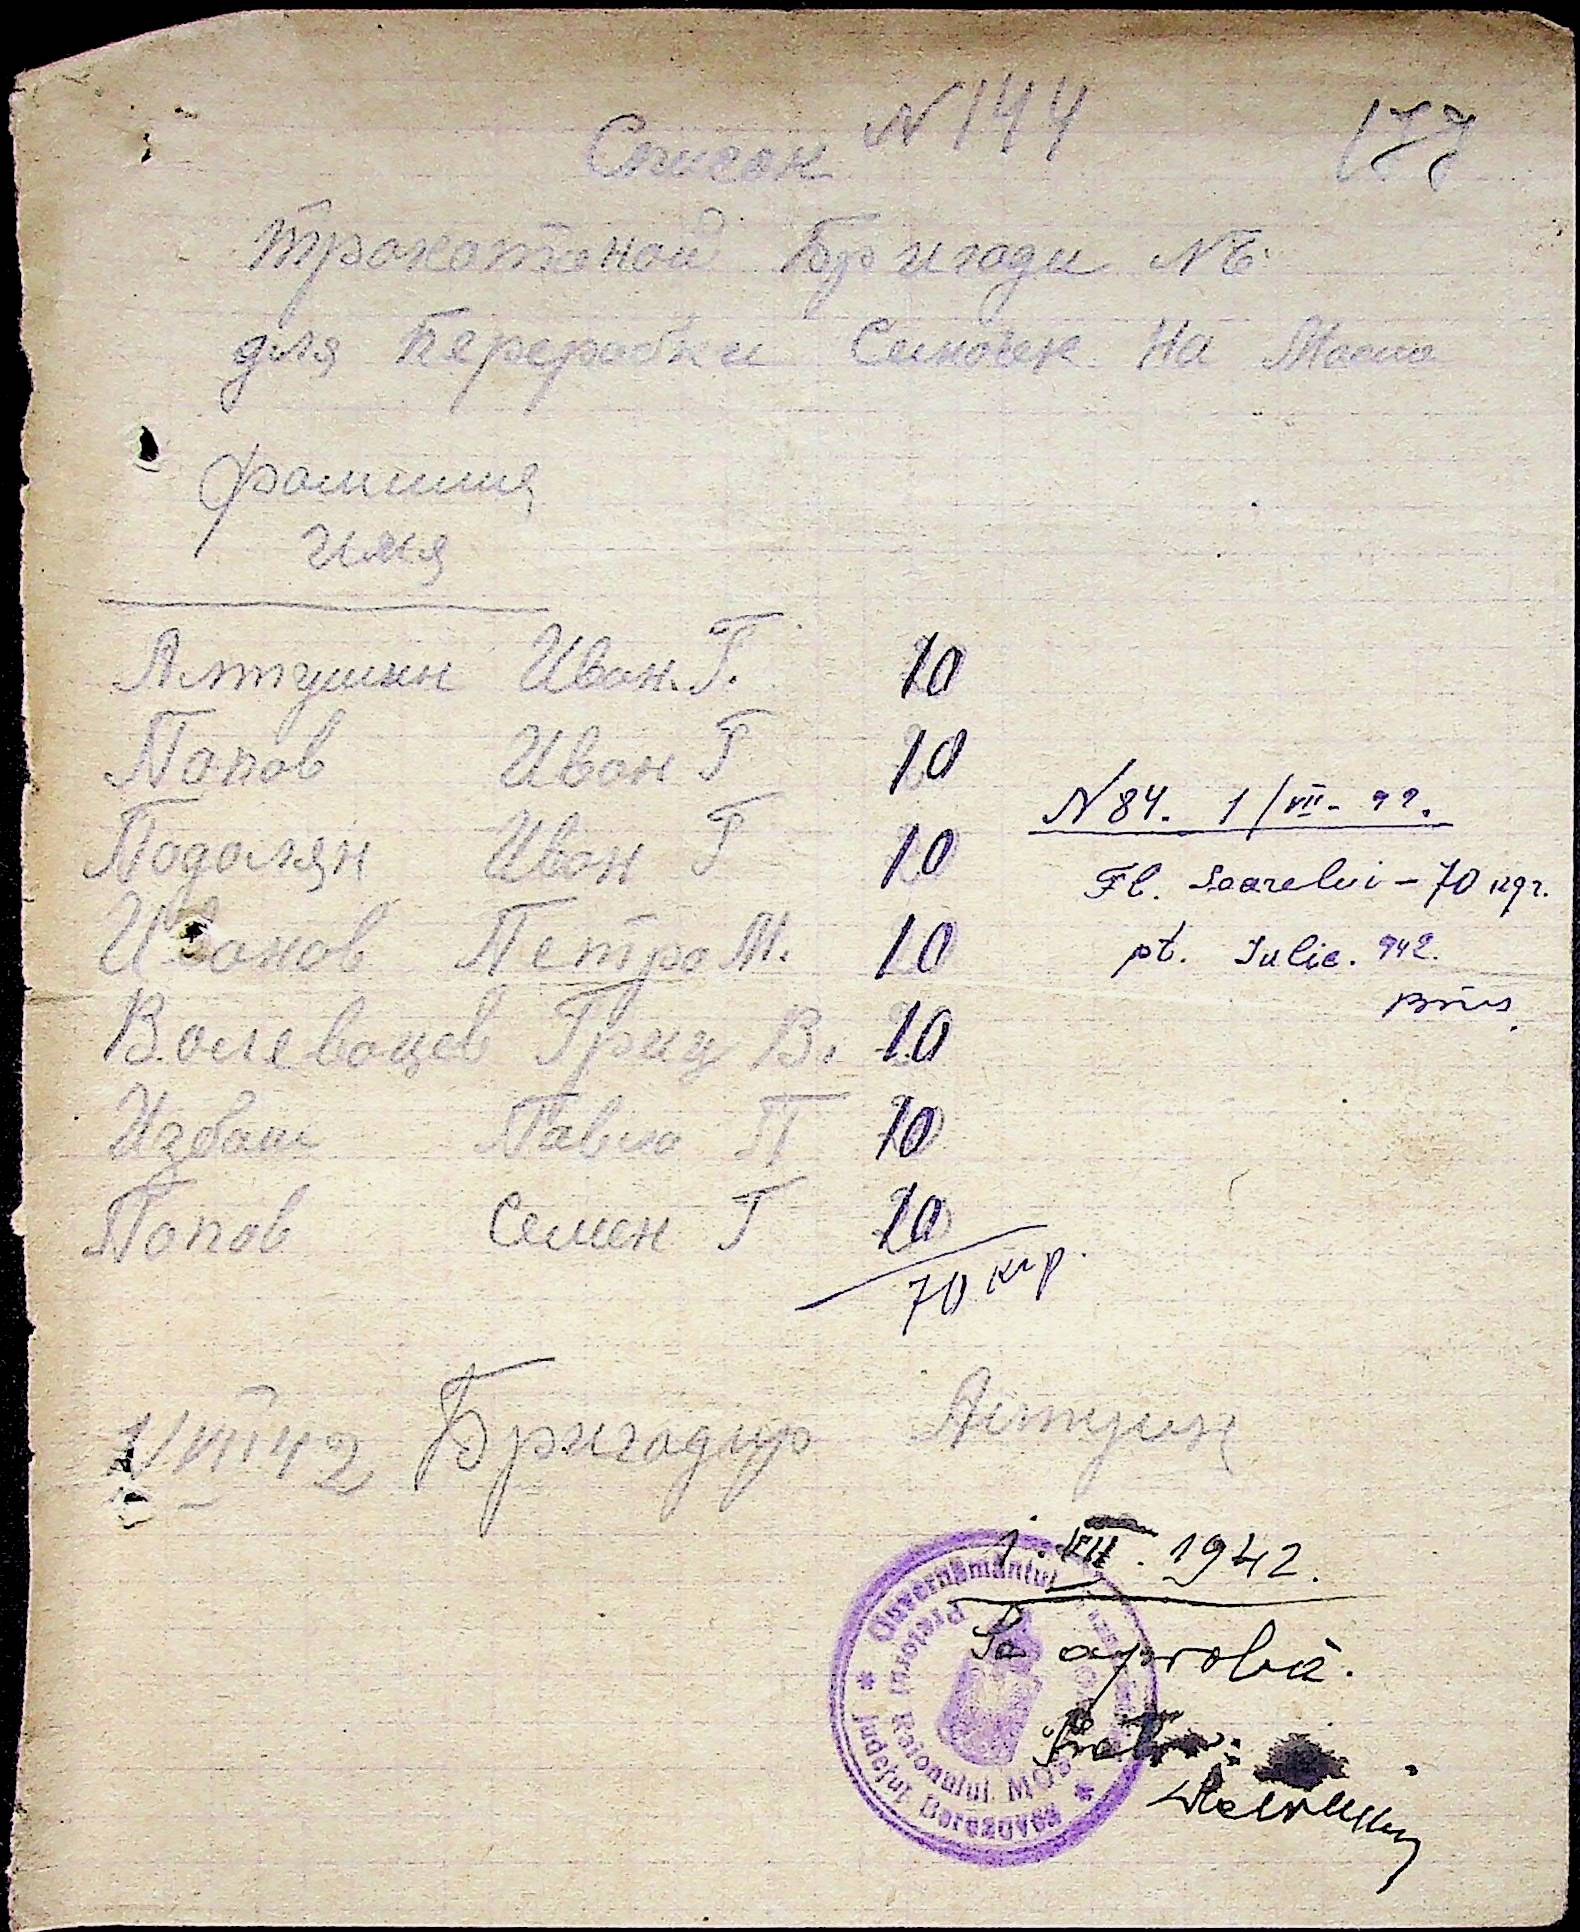 Список N 144
177
Тракотоной Бригади №6
для Переработки Симочек На Масло
Фамилия
имя
Алтушин Иван. Г. 10
Попов Иван Г 10
Подолян Иван Г 10
Иванов Петро М. 10
Волевацев Гриц В. 10
Избаш Павло П 10
Попов Семен Г 10
70 кгр.
N 84. 1/VII- 942.
Fl. Soarelui - 70 кgr.
pt. Iulie. 942.
1/VII 42 Бригадир
1. VII. 1942.
Se aprobă.
Guvernământul
Județul Berezovca
Pretorul Raionului